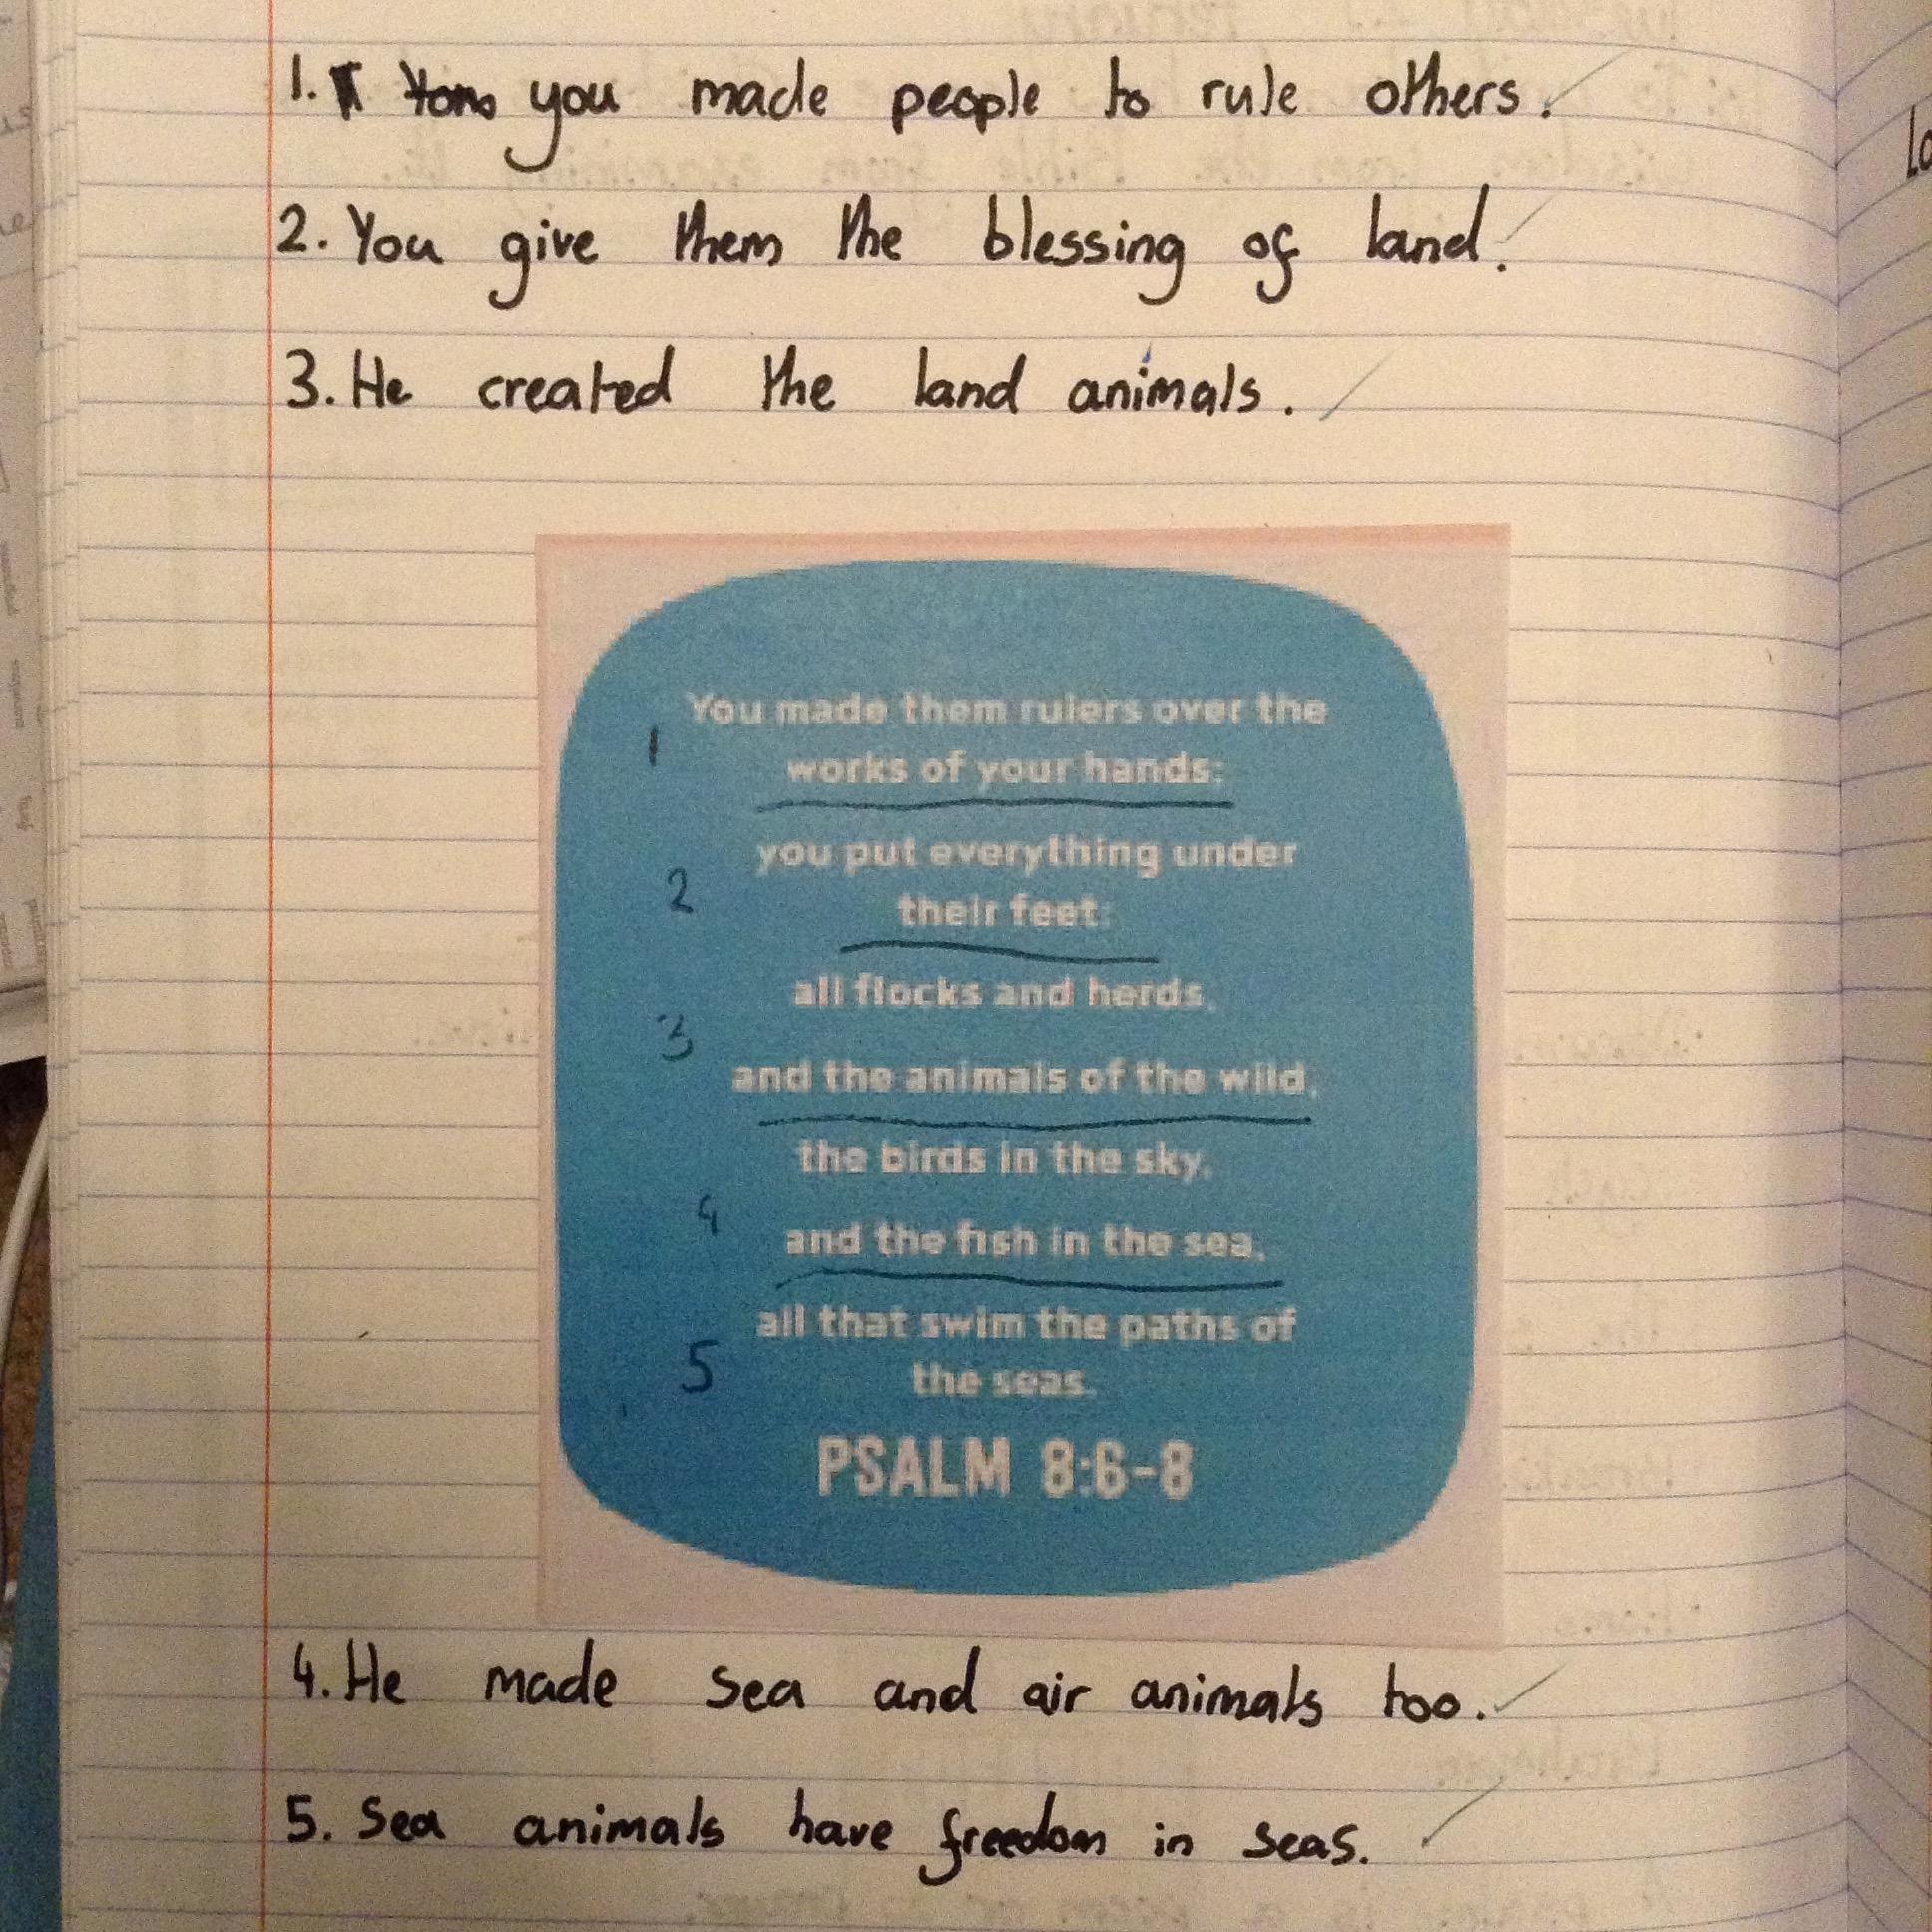 1. you made people to rule others.
2. You give them the blessing of land.
3. He created the land animals.
You made them rulers over the
1
works of your hands;
you put everything under
2
their feet:
all flocks and herds,
3
and the animals of the wild,
the birds in the sky,
4
and the fish in the sea,
all that swim the paths of
5
the seas.
PSALM 8:6-8
4. He made sea and air animals too.
5. Sea animals have freedom in seas.